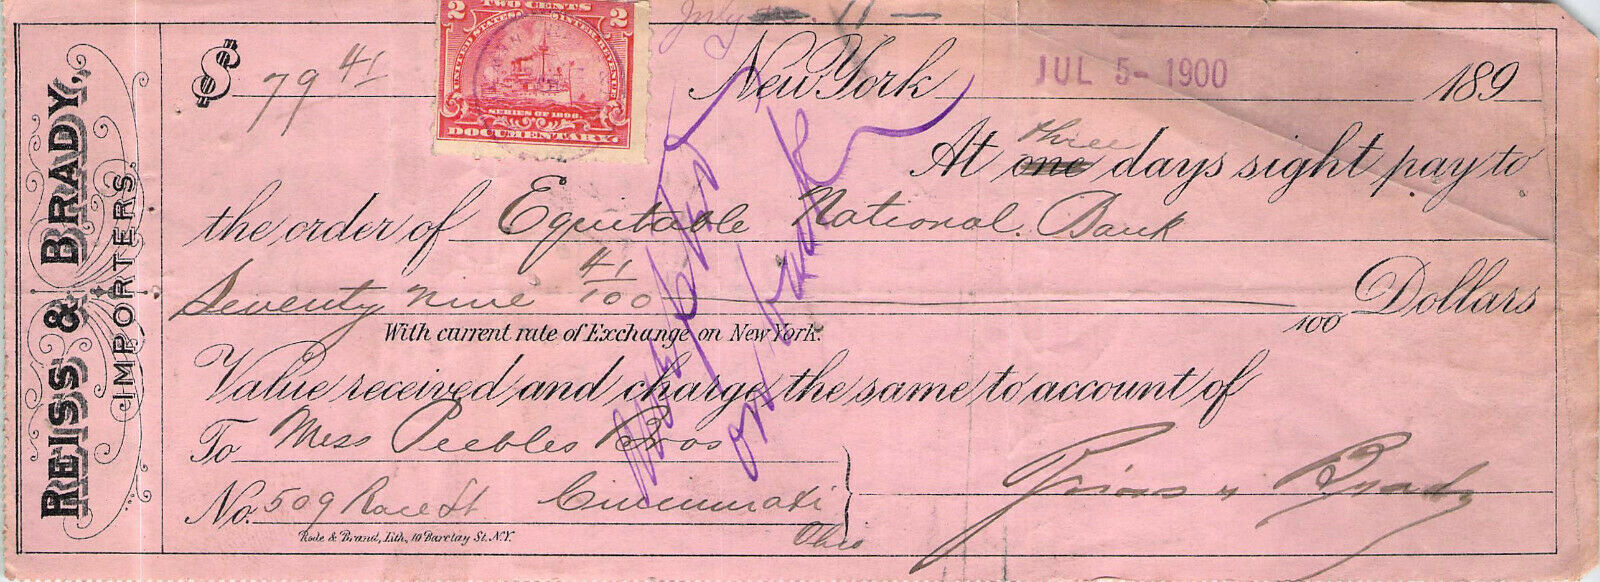 REISS & BRADY,
IMPORTERS
$ 79 41
TWO CENTS
2 2
UNITED STATES INTER. REVENUE
SERIES OF 1898
DOCUMENTARY.
July 11
New York JUL 5- 1900 189
three
At one days sight pay to
the order of Equitable National Bank
Seventy nine 41/100 100 Dollars
With current rate of Exchange on New York.
Value received and charge the same to account of
To Mess Peebles Bros
No. 509 Race St Cincinnati
Ohio
Reiss & Brady
on back
Rode & Brand, Lith, 10 Barclay St. N.Y.